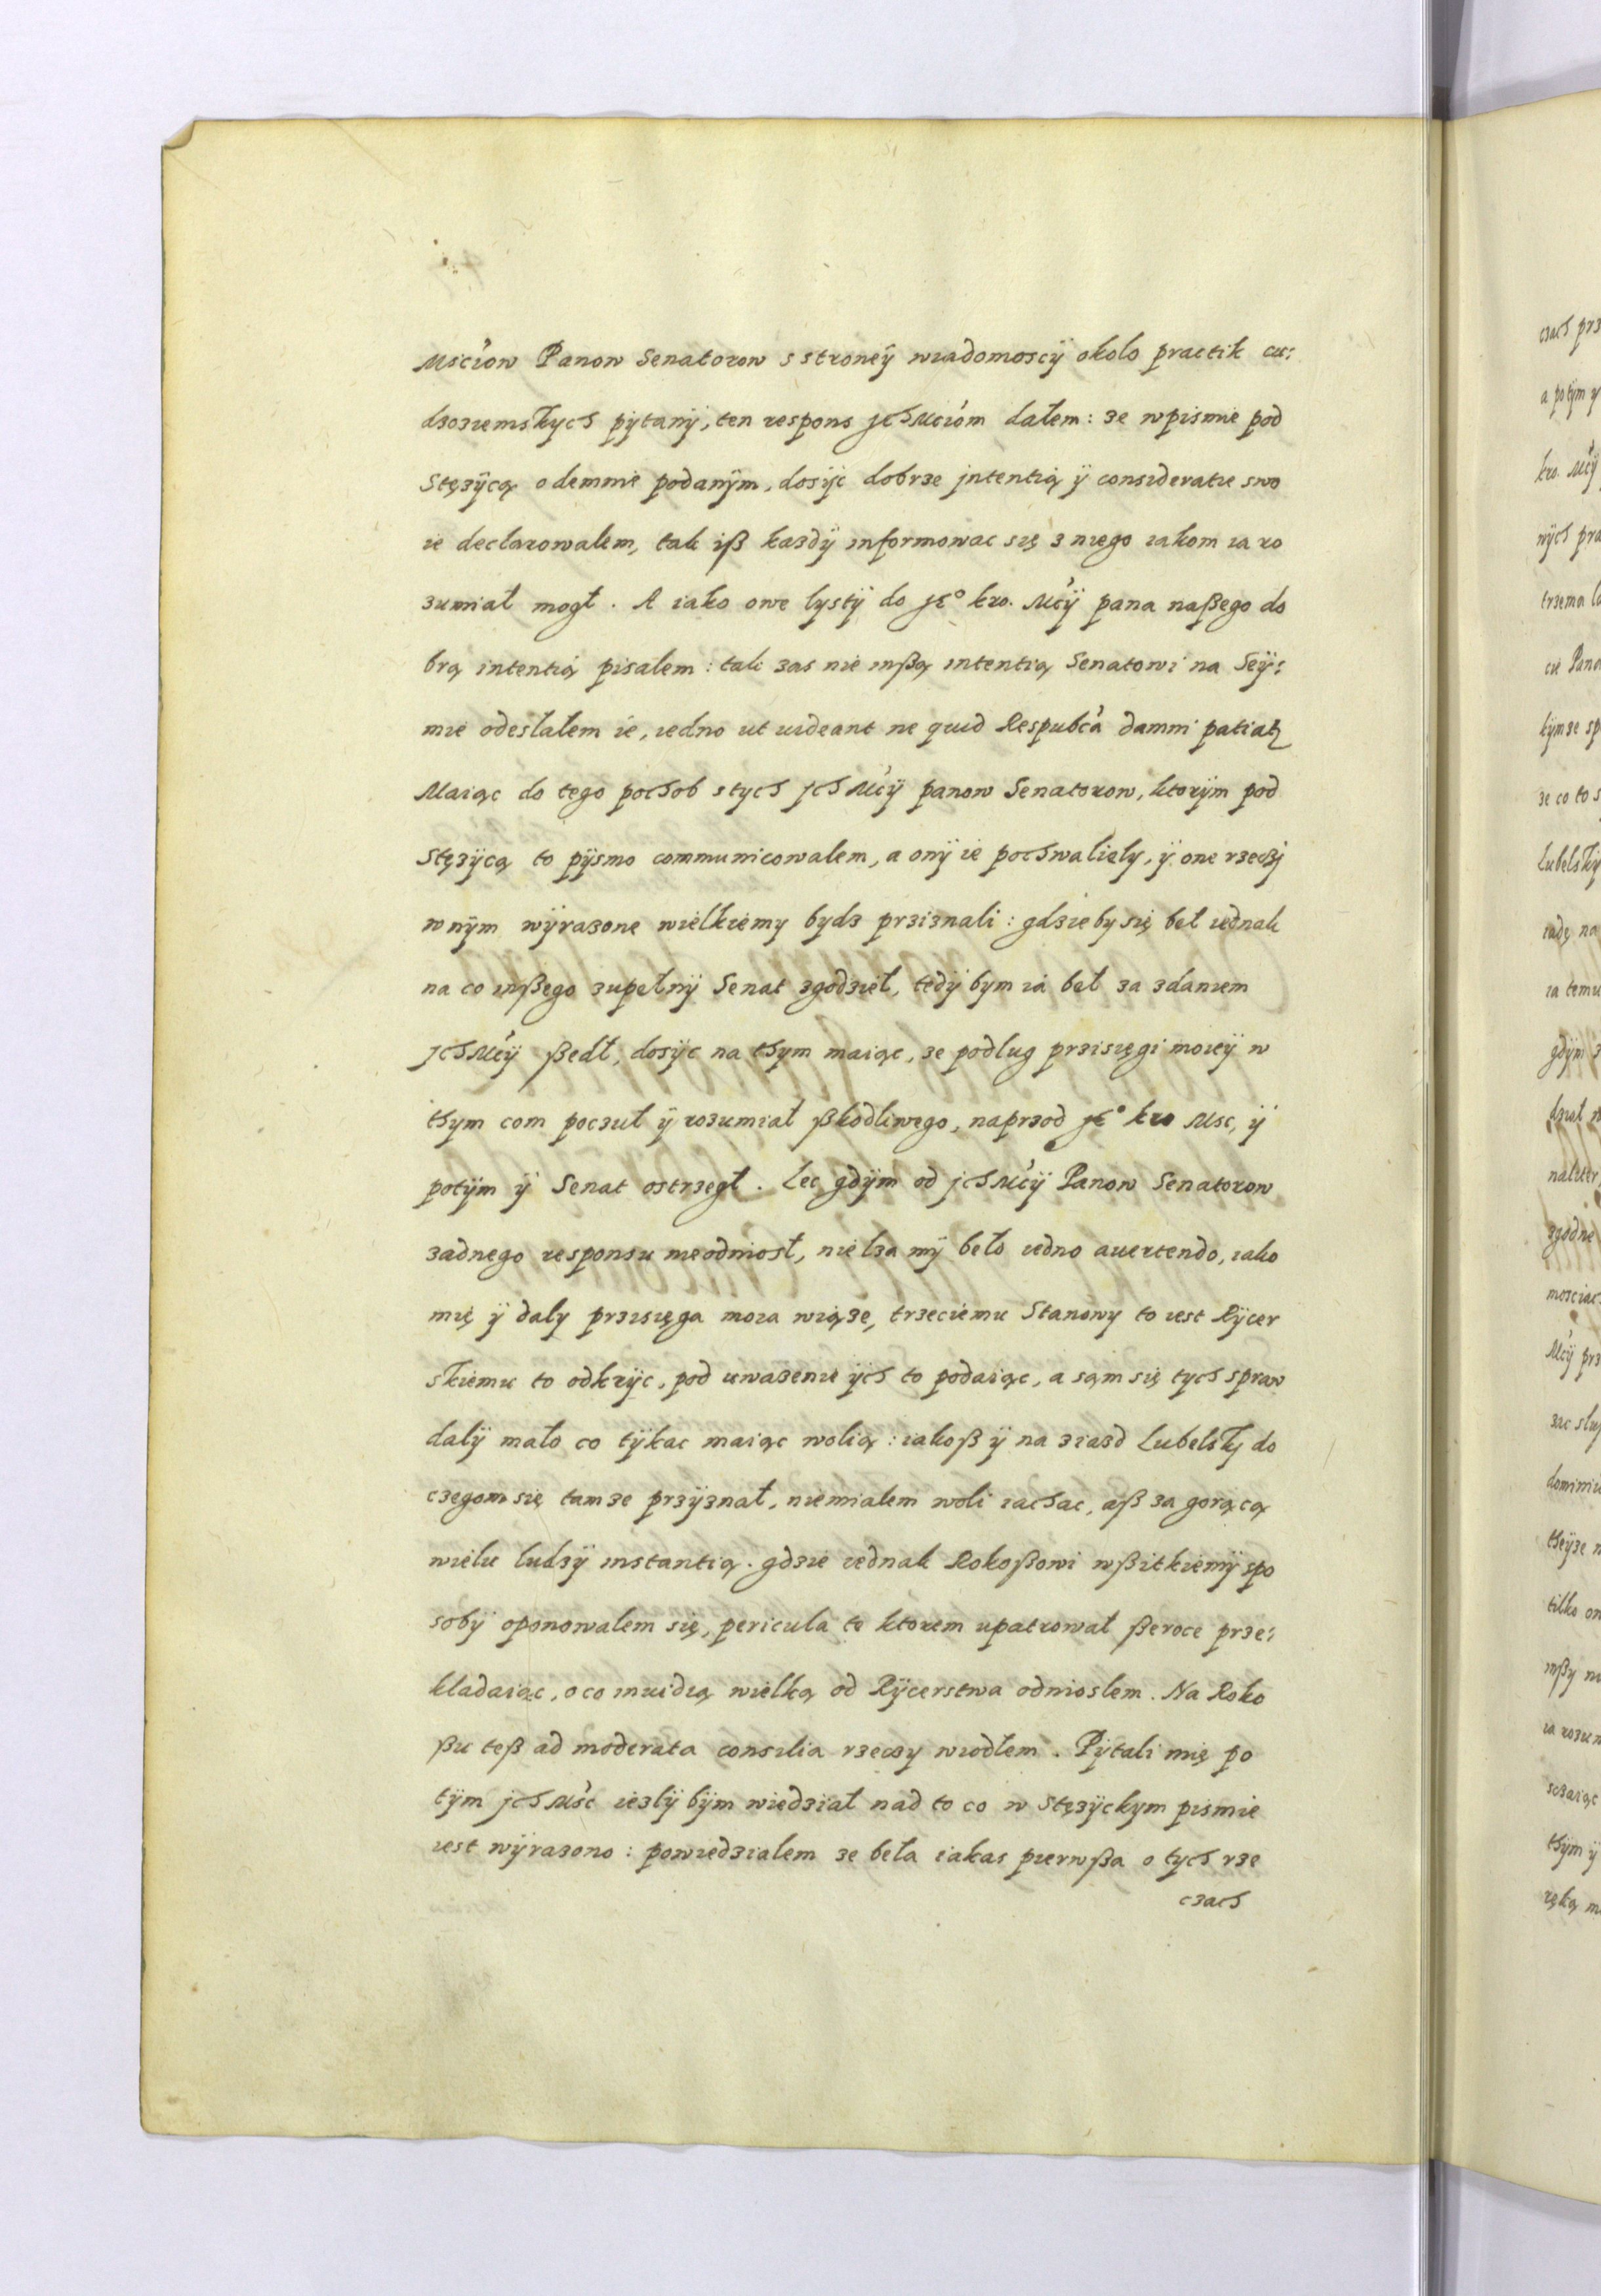 Mściow Panow Senatorow s stroneÿ wiadomoscÿ około practik cu:
dzoziemskych pÿtanÿ, ten respons jchMciom dałem: ze w pismie pod
Stęzÿcą odemnie podanÿm, dosÿc dobrze jntentią ÿ consideratie swo
ie declarowalem, tak iß kazdÿ informowac się z niego iakom ia ro
zumiał mogł. A iako owe lystÿ do jeº kro. Mcÿ pana naßego do
brą intentią pisalem: tak zas nie inßą intentią Senatowi na Seÿ:
mie odesłalem ie, iedno ut uideant ne quid Respubca damni patiatz
Maiąc do tego pochob s tych jch Mcÿ panow Senatorow, ktorÿm pod
Stęzÿcą to pÿsmo communicowalem, a onÿ ie pochwaliely, ÿ one rzeczj
w nÿm wÿrazone wielkiemy bydz prziznali: gdzie by się beł iednak
na co inßego zupełnÿ Senat zgodzieł, tedÿ bym ia beł za zdaniem
jchMcÿ ßedł, dosÿc na thym maiąc, ze podlug przisięgi moieÿ w
thym com poczuł ÿ rozumiał ßkodliwego, naprzod jeº kro Msc, ÿ
potÿm ÿ Senat ostrzegł. Lec gdÿm od jchMcÿ Panow Senatorow
zadnego responsu nieodniosł, nie lza mÿ beło iedno auertendo, iako
mię ÿ daly przisięga moia wiąze, trzeciemu Stanowy to iest Rÿcer
skiemu to odkrÿc, pod uwazenie ÿch to podaiąc, a sąm się tych spraw
dalÿ mało co tÿkac maiąc wolią: iakoß ÿ na ziazd Lubelskj do
czegom się tamze przÿznał, niemialem woli iachac, aß za gorącą
wielu ludzÿ instantią. gdzie iednak Rokoßowi wßitkiemÿ spo
sobÿ oponowalem się, pericula te ktorem upatrował ßeroce prze:
kladaiąc, o co inuidią wielką od Rÿcerstwa odnioslem. Na Roko
ßu teß ad moderata consilia rzeczy wiodłem. Pÿtali mię po
tÿm jchMśc iezlÿ bÿm wiedział nad to co w Stęzÿckym pismie
iest wÿrazono: powiedzialem ze beła iakas pierwßa o tych rze
czach